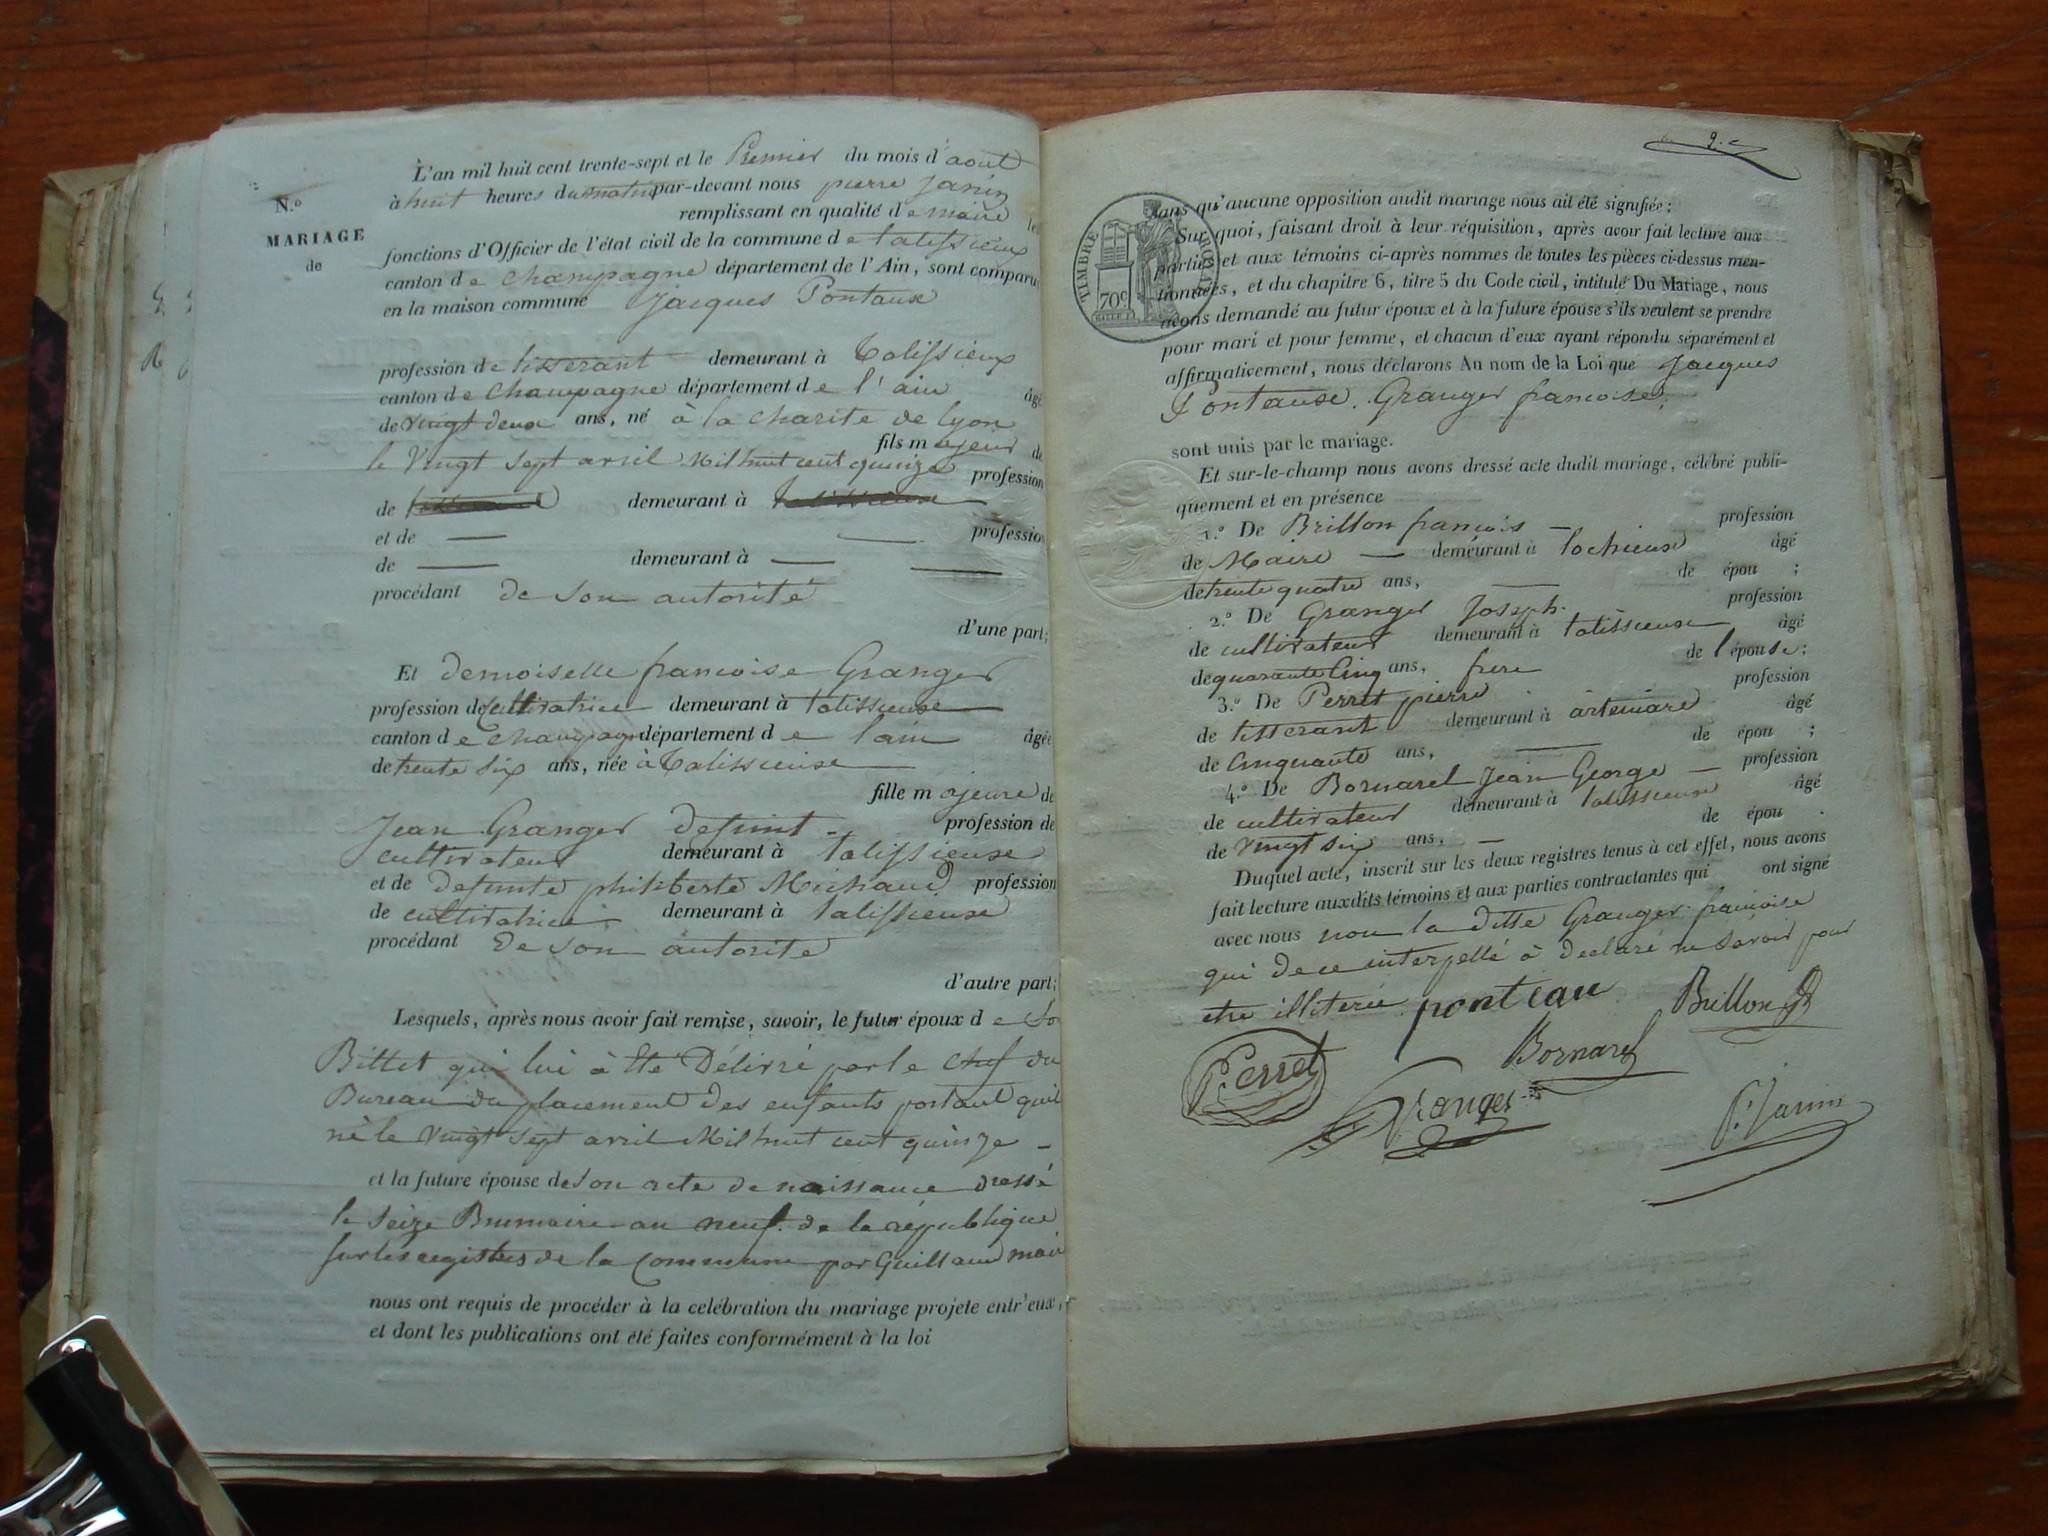 N.º
MARIAGE
de
L'an mil huit cent trente-sept et le Premier du mois d'aout
à huit heures du matin par-devant nous pierre Janin
remplissant en qualité de maire les
fonctions d'Officier de l'état civil de la commune de talissieux
canton de Champagne département de l'Ain, sont comparus
en la maison commune Jacques Pontaux
profession de tisserant demeurant à Talissieux
canton de Champagne département de l'ain âgé
de vingt deux ans, né à la charite de lyon
le Vingt sept avril Mil huit cent quinze fils majeur de
profession
de demeurant à
et de — profession
de — demeurant à —
procédant de son autorité
d'une part;
Et demoiselle francoise Granger
profession de Cultivatrice demeurant à talissieuse
canton de Champagne département de lain âgée
de trente six ans, née à Talissieuse
fille majeure de
Jean Granger defunt - profession de
cultivateur demeurant à talissieuse
et de defunte philiberte Michaud profession
de cultivatrice demeurant à talissieuse
procédant de son autorité
d'autre part;
Lesquels, après nous avoir fait remise, savoir, le futur époux de So
Billet qui lui à Eté Délivré par le chef du
Bureau du placement des enfants portant quil
né le Vingt sept avril Mil huit cent quinze -
et la future épouse de son acte de naissance dressé
le Seize Brumaire an neuf de la république
sur les registres de la Commune par Guilland mair
nous ont requis de procéder à la celébration du mariage projete entr'eux,
et dont les publications ont été faites conformément à la loi
2.e
TIMBRE ROYAL
70c
sans qu'aucune opposition audit mariage nous ait été signifiée;
Sur quoi, faisant droit à leur réquisition, après avoir fait lecture aux
parties et aux témoins ci-après nommes de toutes les pièces ci-dessus men-
tionnées, et du chapitre 6, titre 5 du Code civil, intitulé Du Mariage, nous
avons demandé au futur époux et à la future épouse s'ils veulent se prendre
pour mari et pour femme, et chacun d'eux ayant répondu séparément et
affirmativement, nous déclarons Au nom de la Loi que Jacques
Pontause. Granger francoise
sont unis par le mariage.
Et sur-le-champ nous avons dressé acte dudit mariage, célébré publi-
quement et en présence
1.º De Brillon francois — profession
de Maire — demeurant à lochieux âgé
de trente quatre ans, — de épou ;
2.º De Granger Joseph. profession
de cultivateur demeurant à talissieuse âgé
de quarante Cinq ans, frere de l'épouse;
3.º De Perret pierre profession
de tisserant demeurant à artemare âgé
de Cinquante ans, — de épou ;
4.º De Bornarel Jean George — profession
de cultivateur demeurant à talissieuse âgé
de Vingt six ans, — de épou .
Duquel acte, inscrit sur les deux registres tenus à cet effet, nous avons
fait lecture auxdits témoins et aux parties contractantes qui ont signé
avec nous non la ditte Granger francoise
qui de ce interpellé à declaré ne savoir pour
etre illiterée pontiau Brillon
Perret Bornarel
Granger P. Janin